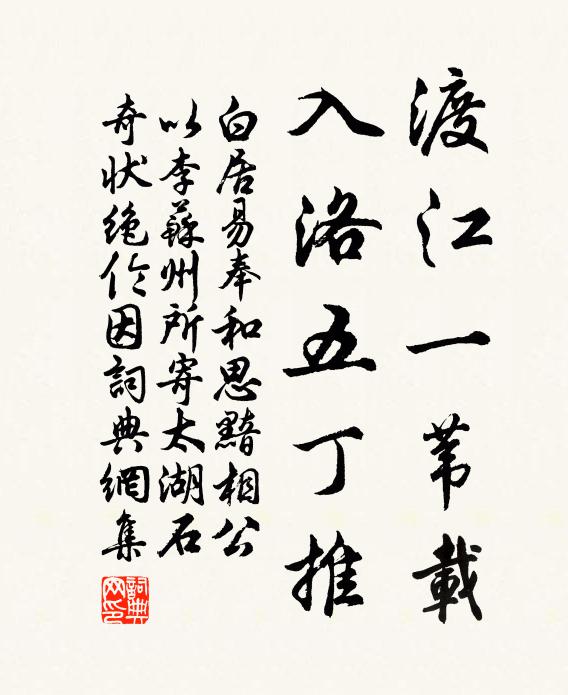 渡江一苇載
入洛五丁推
白居易奉和思黯相公
以李蘇州所寄太湖石
奇状绝伦因詞典網集
詞典网印